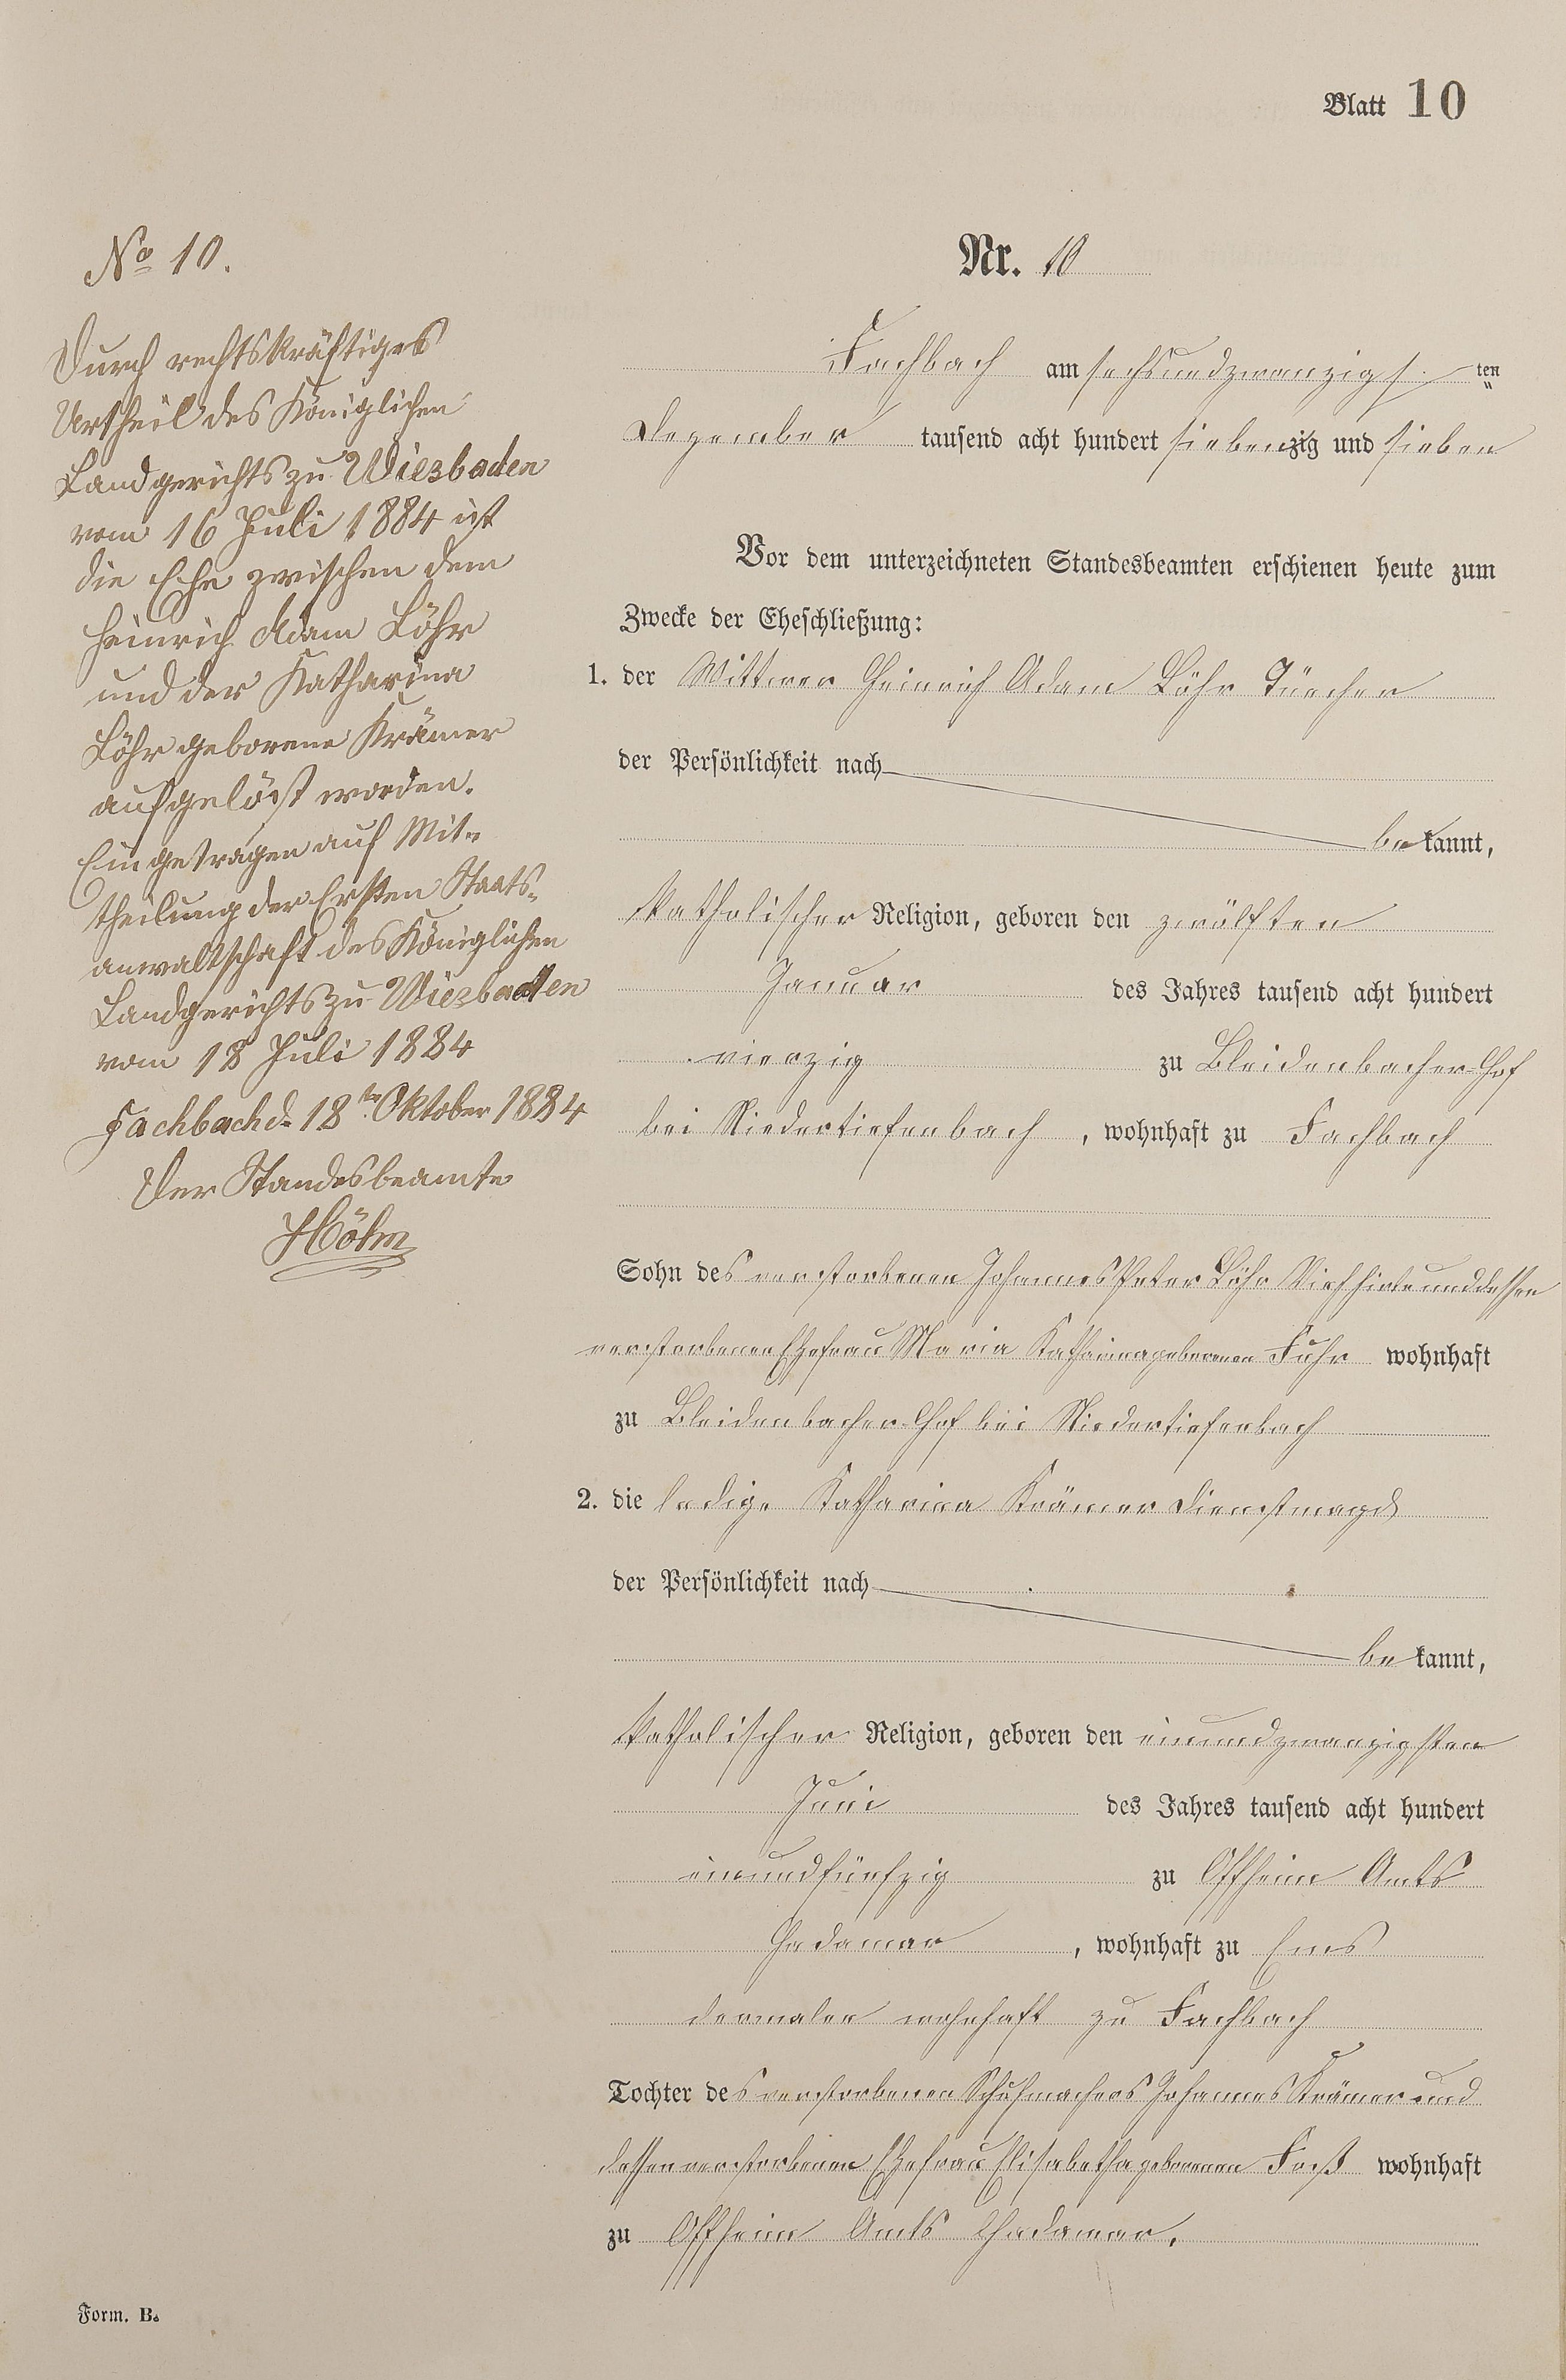 Blatt 10
No 10.
Durch rechtskräftiges
Urtheil des Königlichen
Landgerichts zu Wiesbaden
vom 16 Juli 1884 ist
die Ehe zwischen dem
Heinrich Adam Löhr
und der Katharina
Löhr geborene Krämer
aufgelöst worden.
Eingetragen auf Mit-
theilung der Ersten Staats-
anwaltschaft des Königlichen
Landgerichts zu Wiesbaden
vom 18 Juli 1884
Fachbach d. 18ten Oktober 1884
Der Standesbeamte
Höhn
Nr. 10
Fachbach am sechsundzwanzigs ten
Dezember tausend acht hundert siebenzig und sieben
Vor dem unterzeichneten Standesbeamten erschienen heute zum
Zwecke der Eheschließung:
1. der Wittwer Heinrich Adam Löhr Tüncher
der Persönlichkeit nach
be kannt,
katholischer Religion, geboren den zwölften
Januar des Jahres tausend acht hundert
vierzig zu Bleidenbacher-Hof
bei Niedertiefenbach, wohnhaft zu Fachbach
Sohn des verstorbenen Johannes Peter Löhr Viehhirte und dessen
verstorbenen Ehefrau Maria Katharina geborenen Fuhr wohnhaft
zu Bleidenbacher-Hof bei Niedertiefenbach
2. die ledige Katharina Krämer Dienstmagd
der Persönlichkeit nach
be kannt,
katholischer Religion, geboren den einundzwanzigsten
Juni des Jahres tausend acht hundert
einundfünfzig zu Offheim Amts
Hadamar, wohnhaft zu Ems
dermalen wohnhaft zu Fachbach
Tochter des verstorbenen Schuhmachers Johannes Krämer und
dessen verstorbenen Ehefrau Elisabetha geborenen wohnhaft
zu Offheim Amts Hadamar.
Form. B.